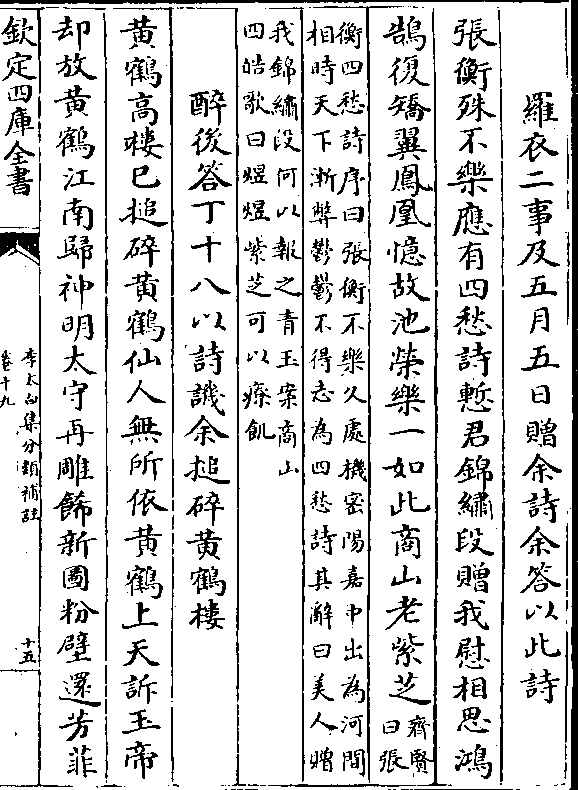 羅衣二事及五月五日贈余詩余答以此詩
張衡殊不樂應有四愁詩慙君錦繡段贈我慰相思鴻
鵠復矯翼鳳凰憶故池榮樂一如此商山老紫芝齊賢
曰張
衡四愁詩序曰張衡不樂久處機密陽嘉中出為河間
相時天下漸弊鬱鬱不得志為四愁詩其辭曰美人贈
我錦繡段何以報之青玉案商山
四皓歌曰煜煜紫芝可以療飢
醉後答丁十八以詩譏余搥碎黄鶴樓
黄鶴高樓已搥碎黄鶴仙人無所依黄鶴上天訴玉帝
却放黄鶴江南歸神明太守再雕飾新圖粉壁還芳菲
欽定四庫全書
李太白集分類補註
卷十九
十五